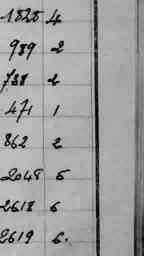 1825 4
989 2
738 2
471 1
862 2
2048 5
2618 6
2619 6.